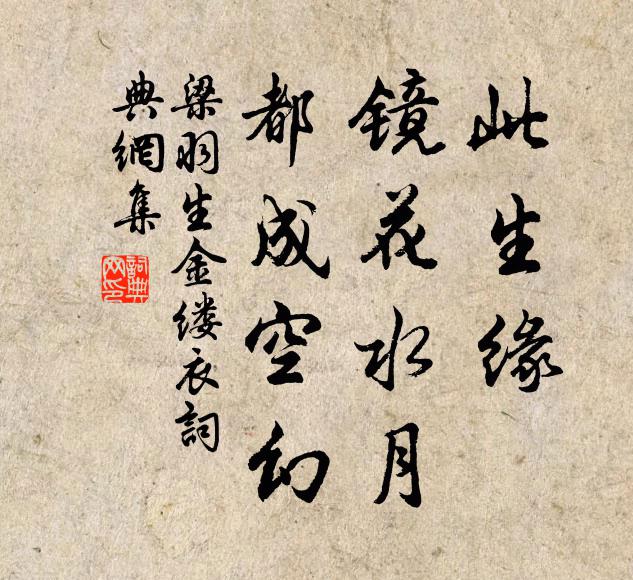 此生缘
镜花水月
都成空幻
梁羽生金缕衣詞
典網集
詞典
网印